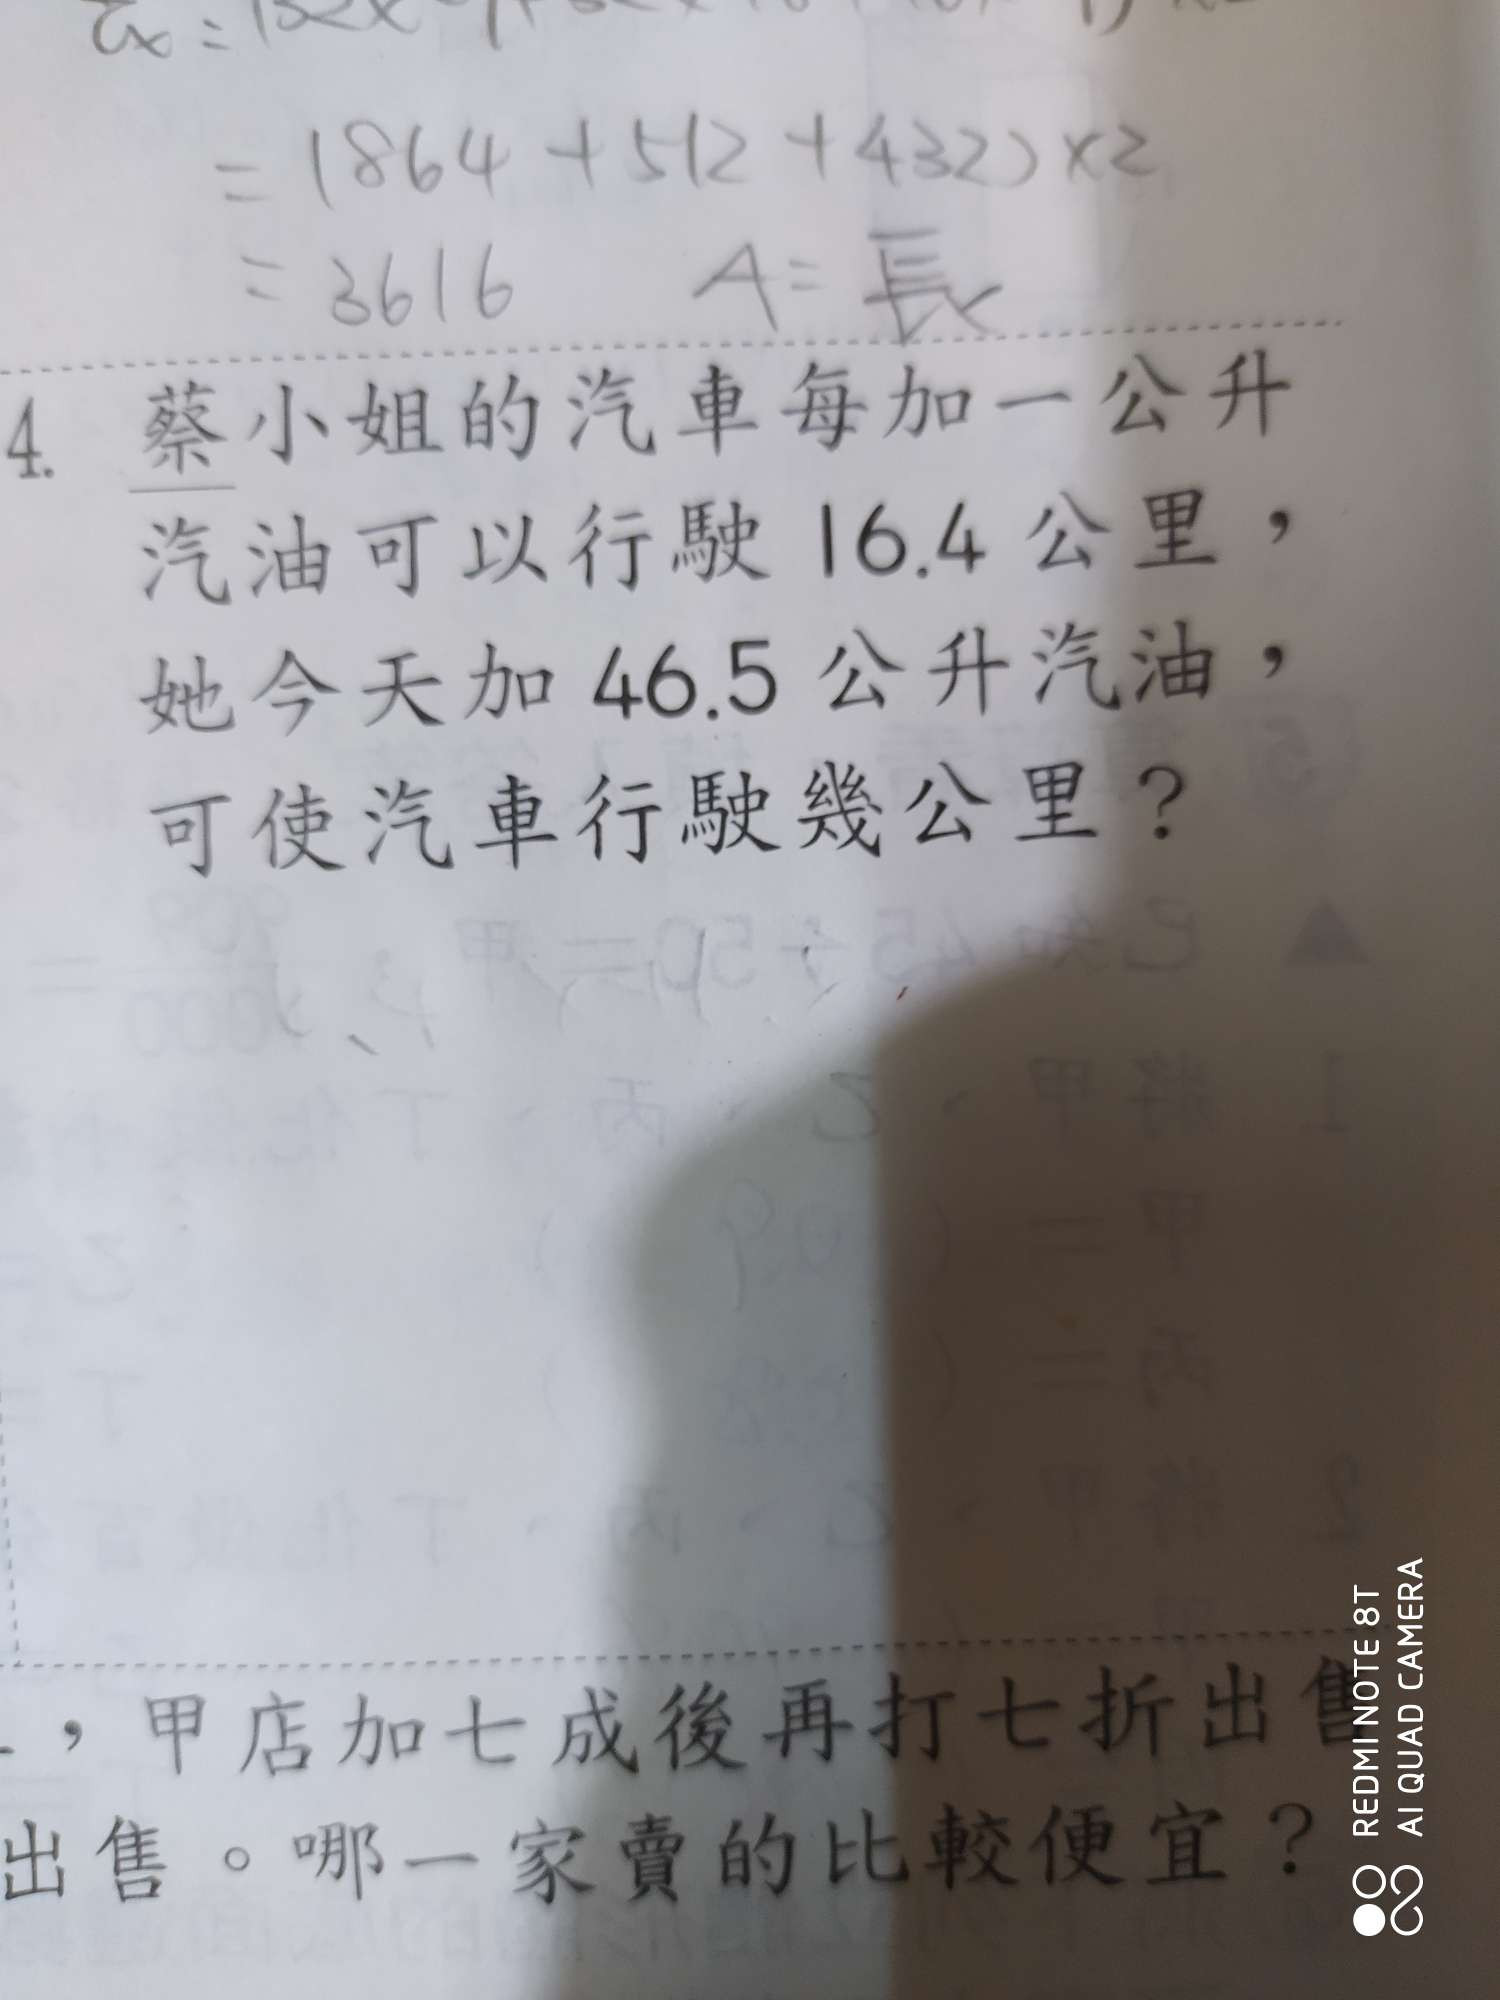 = (864 + 512 + 432) × 2
= 3616 A = 長
4. 蔡小姐的汽車每加一公升
汽油可以行駛 16.4 公里，
她今天加 46.5 公升汽油，
可使汽車行駛幾公里？
，甲店加七成後再打七折出售
出售。哪一家賣的比較便宜？
REDMI NOTE 8T
AI QUAD CAMERA